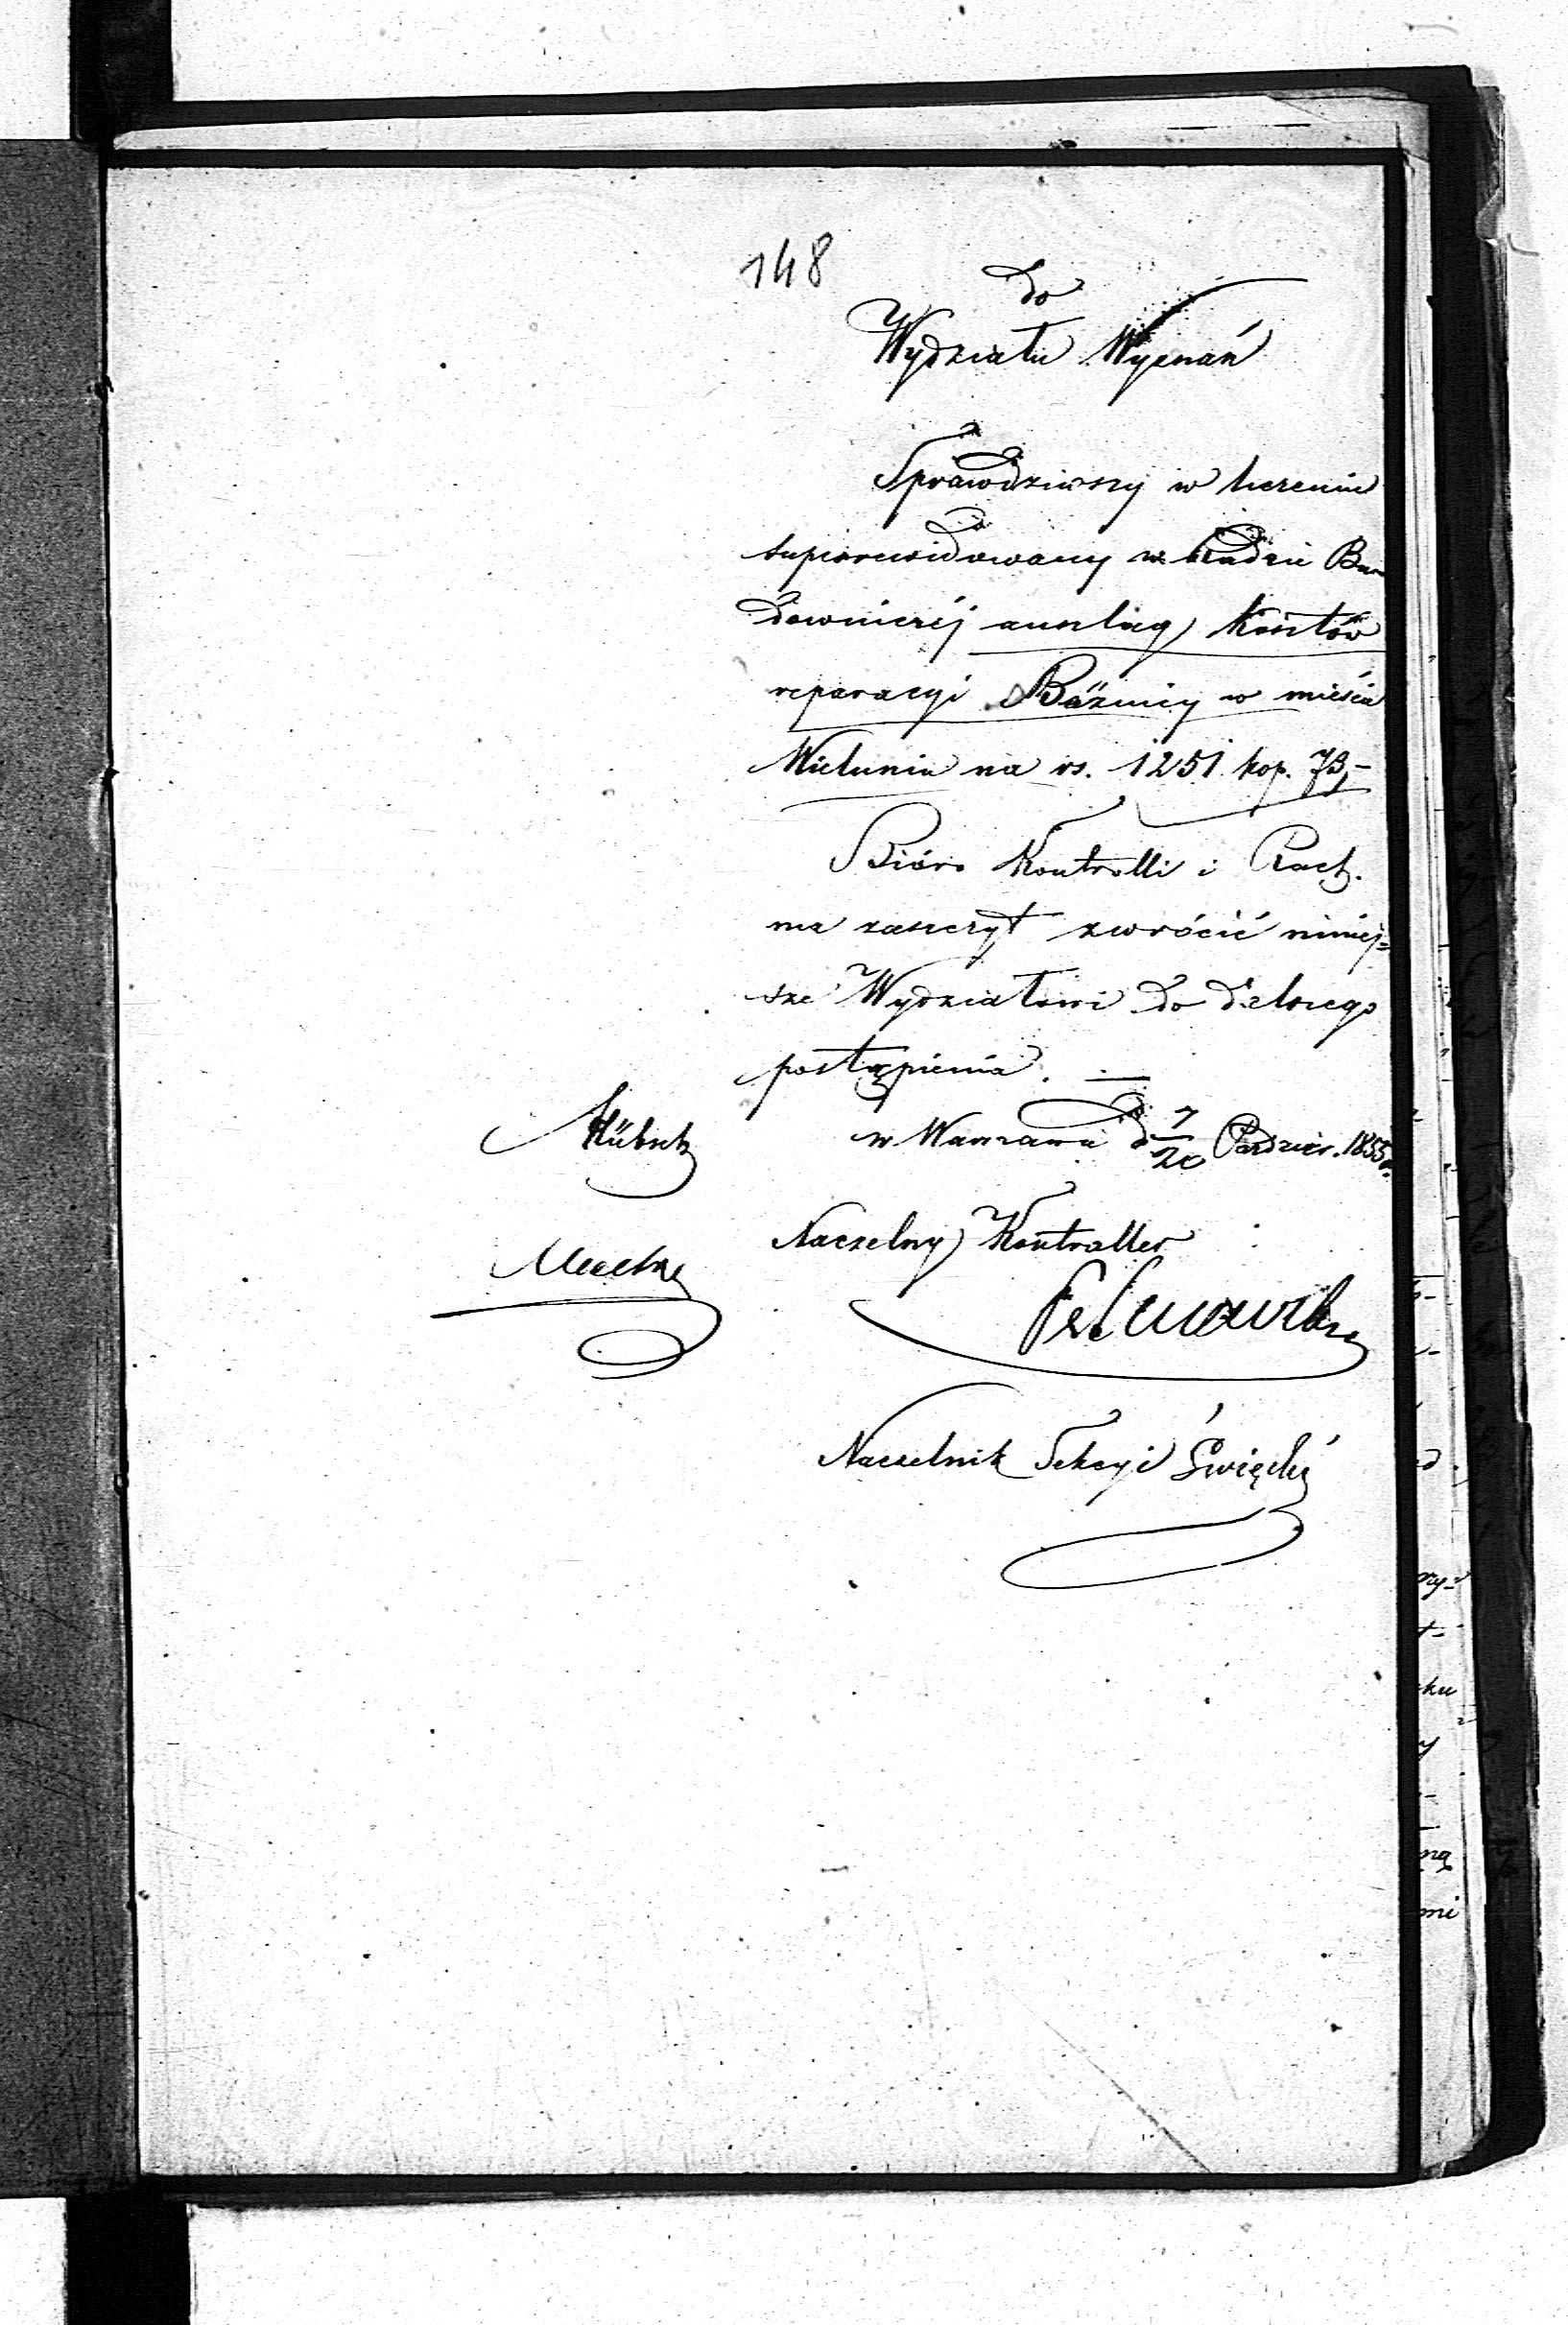 148
Do
Wydziału Wyznań
Sprawdziwszy w liczeniu
superrewidowany w Radzie Bu-
downiczéj anszlag kosztów
reparacyi Bóżnicy w mieście
Wieluniu na rs. 1251 kop. 73,-
Bióro Kontrolli i Rach.
ma zaszczyt zwrócić niniej=
sze Wydziałowi do dalszego
postąpienia. —
w Warszawie d 7/20 Paździer. 1855 r.
Naczelny Kontroller
Naczelnik Sekcyi Święcki